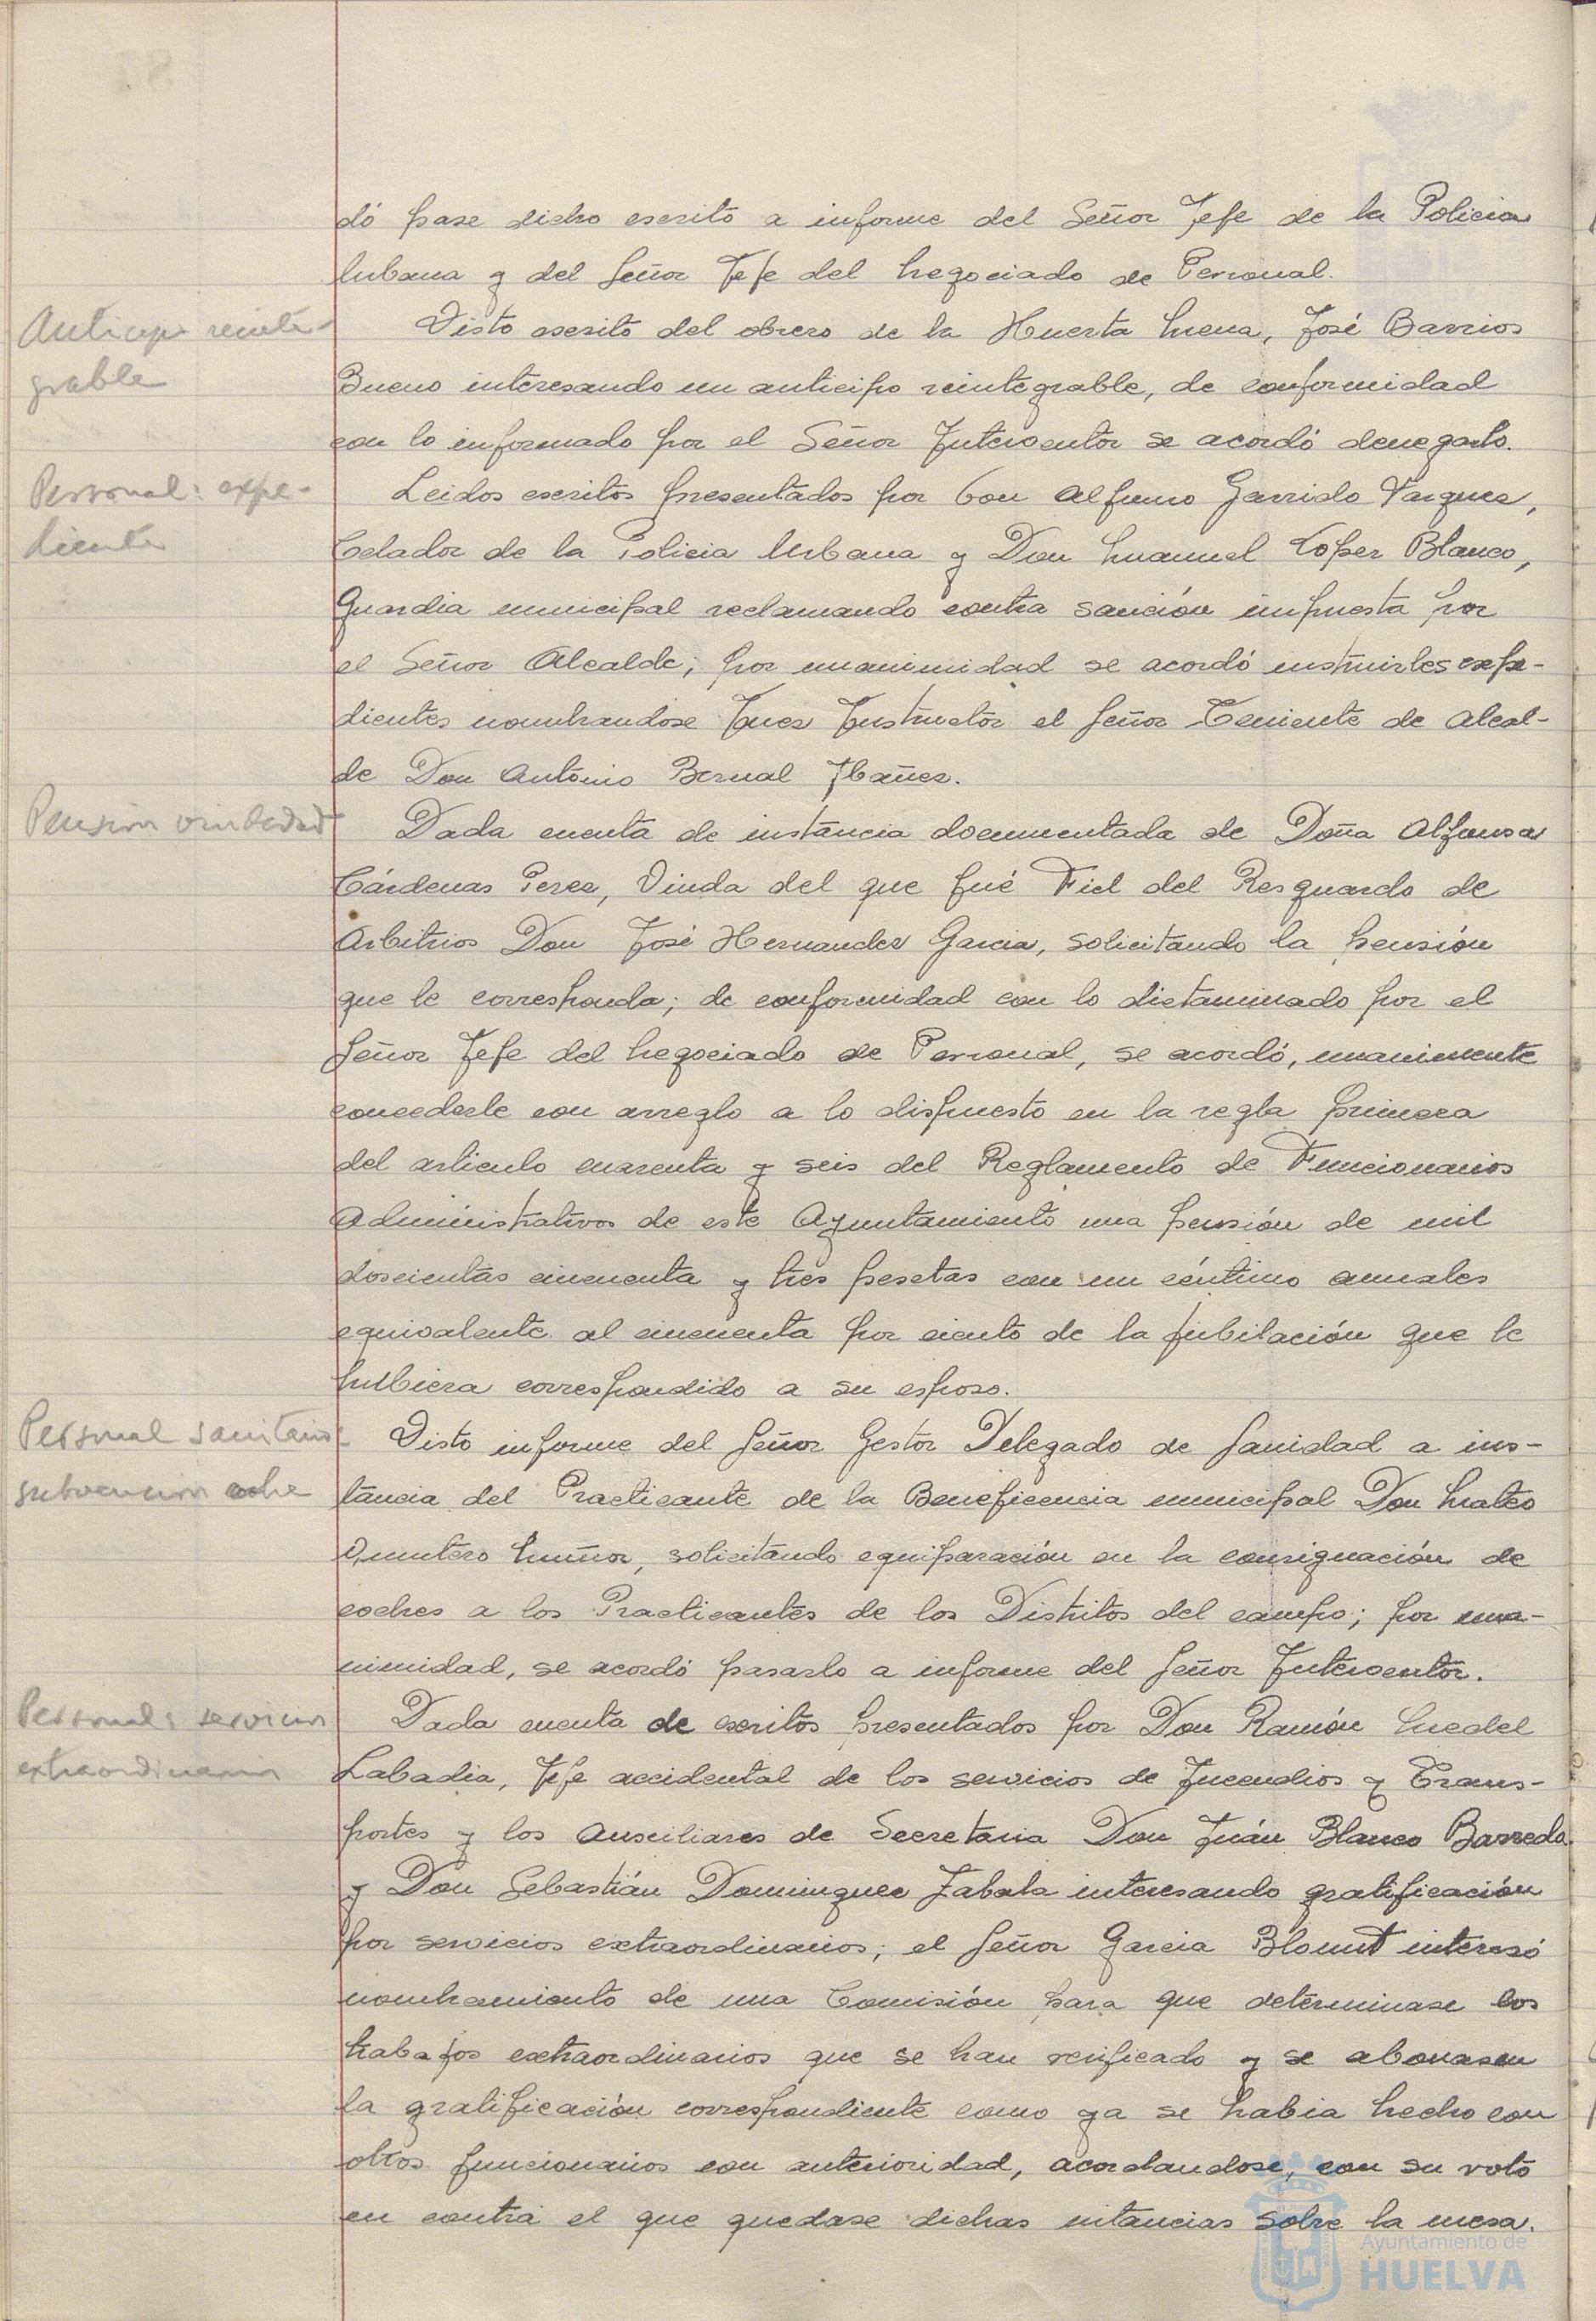 dó pase dicho escrito a informe del Señor Jefe de la Policia
Urbana y del Señor Jefe del Negociado de Personal.
Anticipo reinte-
grable
Visto escrito del obrero de la Huerta Mena, José Barrios
Bueno interesando un anticipo reintegrable, de conformidad
con lo informado por el Señor Interventor se acordó denegarlo.
Personal: expe-
diente
Leidos escritos presentados por Don Alfonso Garrido Vazquez,
Celador de la Policia Urbana y Don Manuel Lopez Blanco,
Guardia municipal reclamando contra sanción impuesta por
el Señor Alcalde; por unanimidad se acordó instruirles expe-
dientes nombrandose Juez Instructor el Señor Teniente de Alcal-
de Don Antonio Bernal Ibañez.
Pensión viudedad
Dada cuenta de instancia documentada de Doña Alfonsa
Cárdenas Perez, Viuda del que fué Fiel del Resguardo de
Arbitrios Don José Hernandez Garcia, solicitando la pensión
que le corresponda; de conformidad con lo dictaminado por el
Señor Jefe del Negociado de Personal, se acordó, unanimente
concederle con arreglo a lo dispuesto en la regla primera
del articulo cuarenta y seis del Reglamento de Funcionarios
Administrativos de este Ayuntamiento una pensión de mil
doscientas cincuenta y tres pesetas con un céntimo anuales
equivalente al cincuenta por ciento de la jubilación que le
hubiera correspondido a su esposo.
Personal sanitario
subvencion coche
Visto informe del Señor Gestor Delegado de Sanidad a ins-
tancia del Practicante de la Beneficencia municipal Don Mateo
Quintero Muñoz, solicitando equiparación en la consignación de
coches a los Practicantes de los Distritos del campo; por una-
nimidad, se acordó pasarlo a informe del Señor Interventor.
Personal: servicios
extraordinarios
Dada cuenta de escritos presentados por Don Ramón Medel
Labadia, Jefe accidental de los servicios de Incendios y Trans-
portes y los Auxiliares de Secretaria Don Juán Blanco Barreda
y Don Sebastián Dominguez Zabala interesando gratificación
por servicios extraordinarios; el Señor Garcia Blount interesó
nombramiento de una Comisión para que determinase los
trabajos extraordinarios que se han verificado y se abonasen
la gratificación correspondiente como ya se habia hecho con
otros funcionarios con anterioridad, acordandose, con su voto
en contra el que quedase dichas intancias sobre la mesa.
Ayuntamiento de
HUELVA